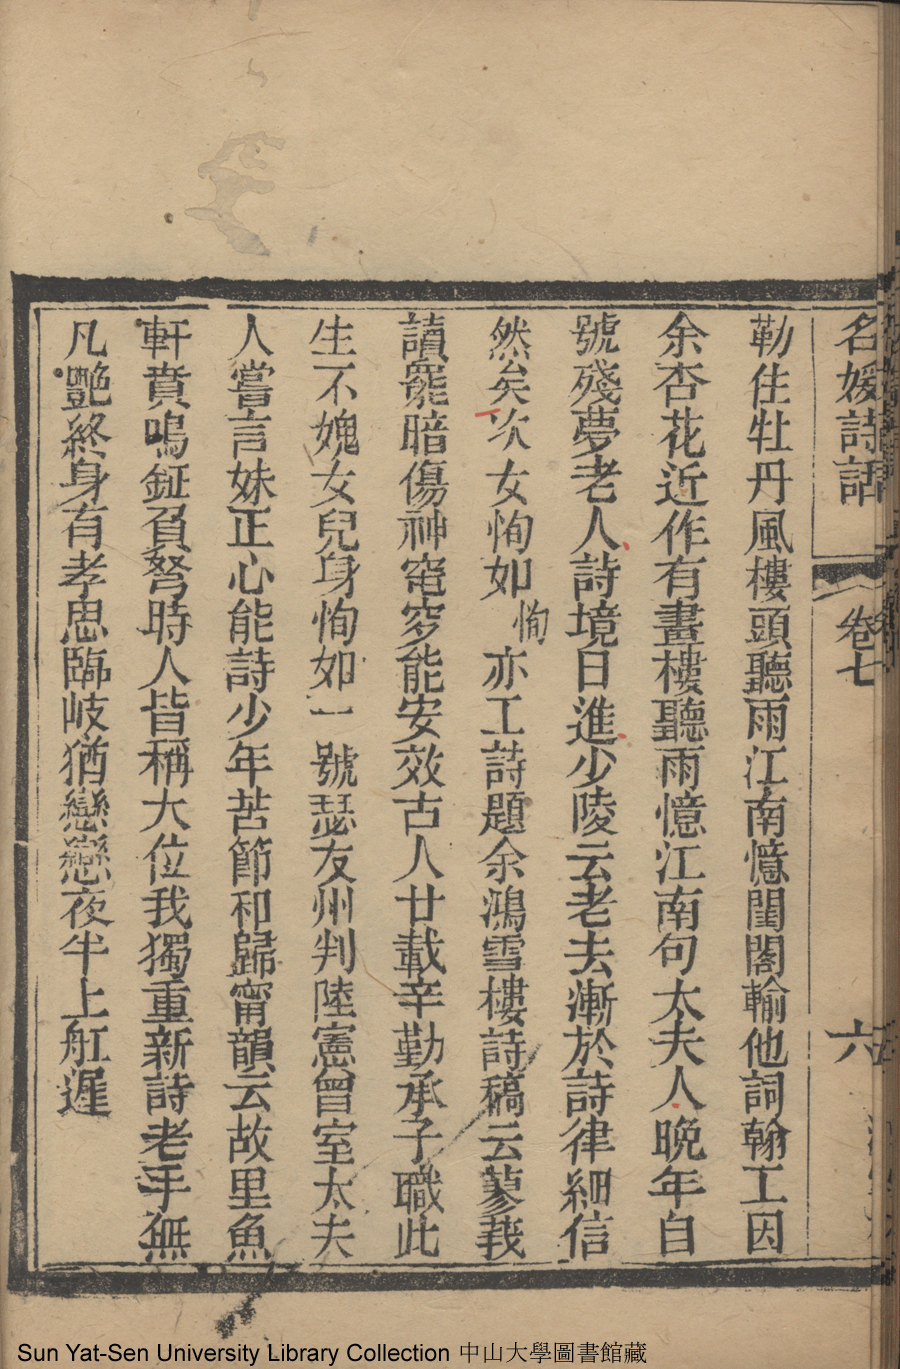 名媛詩話 卷七 六
勒住牡丹風樓頭聽雨江南憶閨閣輸他詞翰工因
余杏花近作有畫樓聽雨憶江南句太夫人晚年自
號殘夢老人詩境日進少陵云老去漸於詩律細信
然矣次女恂如恂亦工詩題余鴻雪樓詩稿云蓼莪
讀罷暗傷神窀穸能安效古人廿載辛勤承子職此
生不媿女兒身恂如一號瑟友州判陸憲曾室太夫
人嘗言妹正心能詩少年苦節和歸甯韻云故里魚
軒賁鳴鉦負弩時人皆稱大位我獨重新詩老手無
凡艷終身有孝思臨岐猶戀戀夜半上舡遲
Sun Yat-Sen University Library Collection 中山大學圖書館藏